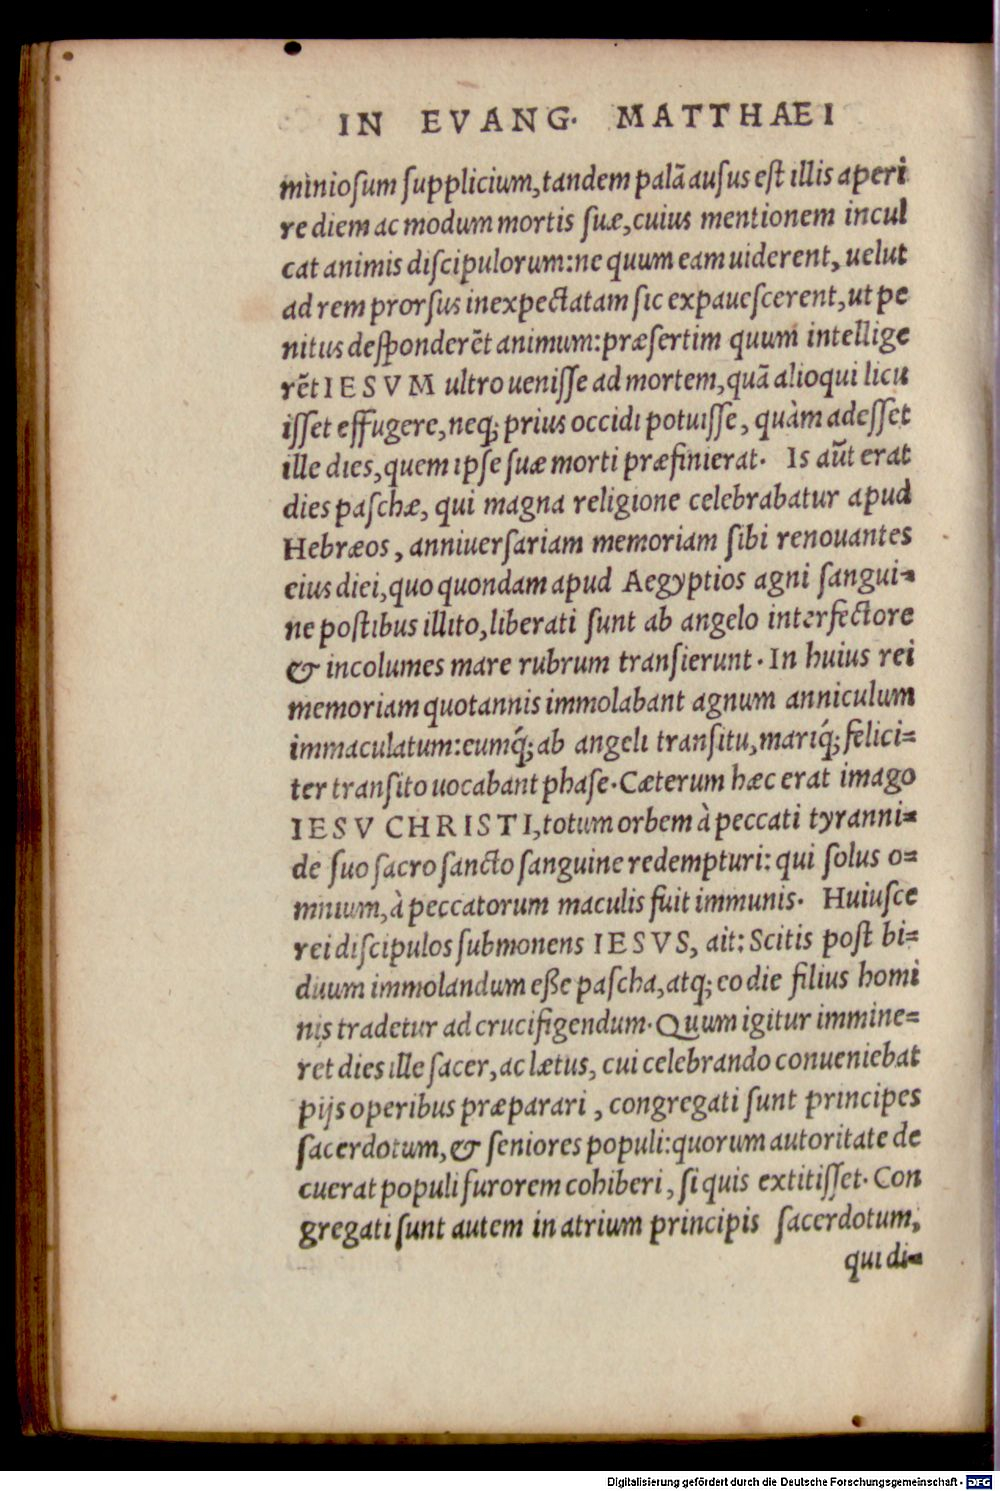 IN EVANG. MATTHAEI
miniosum supplicium, tandem palã ausus est illis aperi
re diem ac modum mortis suæ, cuius mentionem incul
cat animis discipulorum: ne quum eam uiderent, uelut
ad rem prorsus inexpectatam sic expauescerent, ut pe
nitus desponderẽt animum: præsertim quum intellige
rẽt IESVM ultro uenisse ad mortem, quã alioqui licu
isset effugere, neq; prius occidi potuisse, quàm adesset
ille dies, quem ipse suæ morti præfinierat. Is aũt erat
dies paschæ, qui magna religione celebrabatur apud
Hebræos, anniuersariam memoriam sibi renouantes
eius diei, quo quondam apud Aegyptios agni sangui-
ne postibus illito, liberati sunt ab angelo interfectore
& incolumes mare rubrum transierunt. In huius rei
memoriam quotannis immolabant agnum anniculum
immaculatum: eumq́; ab angeli transitu, mariq́; felici-
ter transito uocabant phase. Cæterum hæc erat imago
IESV CHRISTI, totum orbem à peccati tyranni-
de suo sacro sancto sanguine redempturi: qui solus o-
mnium, à peccatorum maculis fuit immunis. Huiusce
rei discipulos submonens IESVS, ait: Scitis post bi-
duum immolandum eße pascha, atq; eo die filius homi
nis tradetur ad crucifigendum. Quum igitur immine-
ret dies ille sacer, ac lætus, cui celebrando conueniebat
pijs operibus præparari, congregati sunt principes
sacerdotum, & seniores populi: quorum autoritate de
cuerat populi furorem cohiberi, si quis extitisset. Con
gregati sunt autem in atrium principis sacerdotum,
qui di-
Digitalisierung gefördert durch die Deutsche Forschungsgemeinschaft - DFG